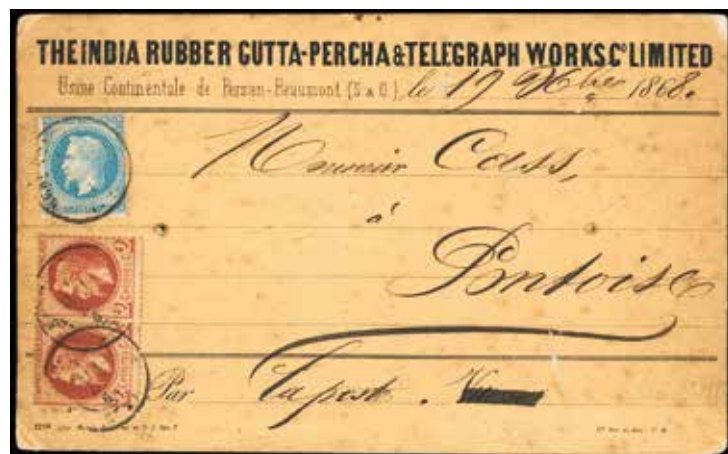 THE INDIA RUBBER GUTTA-PERCHA & TELEGRAPH WORKS Cº LIMITED
Usine Continentale de Persan-Beaumont (S & O), le 19 Xbre 1868.
Monsieur Cass,
à
Pontoise
Par la poste.